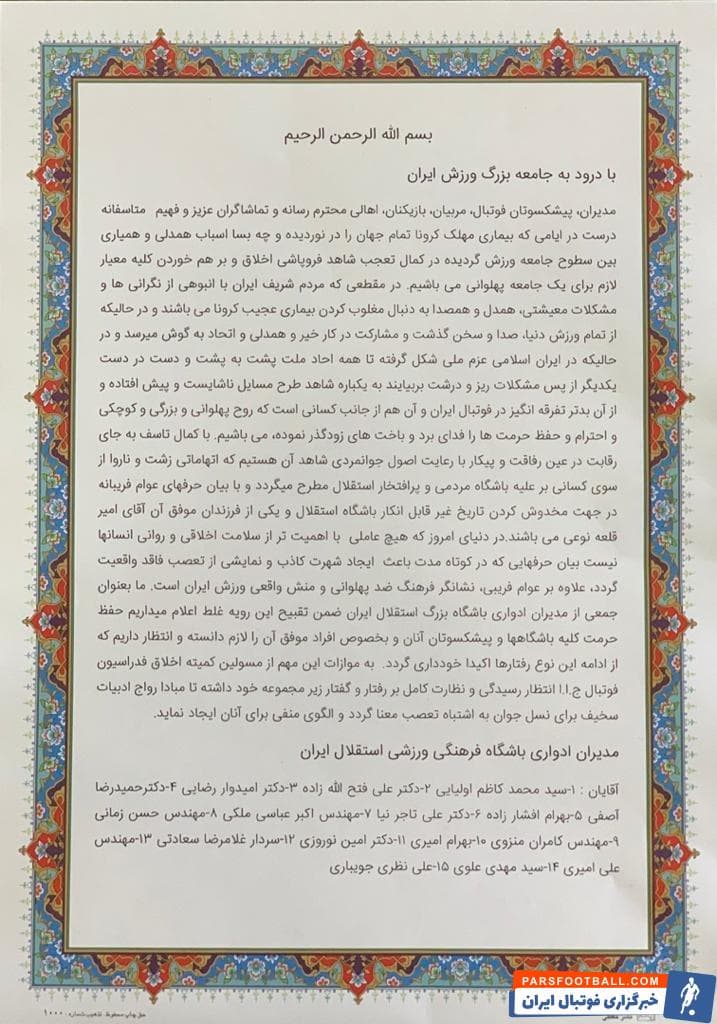 بسم الله الرحمن الرحیم
با درود به جامعه بزرگ ورزش ایران
مدیران، پیشکسوتان فوتبال، مربیان، بازیکنان، اهالی محترم رسانه و تماشاگران عزیز و فهیم متاسفانه
درست در ایامی که بیماری مهلک کرونا تمام جهان را در نوردیده و چه بسا اسباب همدلی و همیاری
بین سطوح جامعه ورزش گردیده در کمال تعجب شاهد فروپاشی اخلاق و بر هم خوردن کلیه معیار
لازم برای یک جامعه پهلوانی می باشیم. در مقطعی که مردم شریف ایران با انبوهی از نگرانی ها و
مشکلات معیشتی، همدل و همصدا به دنبال مغلوب کردن بیماری عجیب کرونا می باشند و در حالیکه
از تمام ورزش دنیا، صدا و سخن گذشت و مشارکت در کار خیر و همدلی و اتحاد به گوش میرسد و در
حالیکه در ایران اسلامی عزم ملی شکل گرفته تا همه احاد ملت پشت به پشت و دست در دست
یکدیگر از پس مشکلات ریز و درشت بربیایند به یکباره شاهد طرح مسایل ناشایست و پیش افتاده و
از آن بدتر تفرقه انگیز در فوتبال ایران و آن هم از جانب کسانی است که روح پهلوانی و بزرگی و کوچکی
و احترام و حفظ حرمت ها را فدای برد و باخت های زودگذر نموده، می باشیم. با کمال تاسف به جای
رقابت در عین رفاقت و پیکار با رعایت اصول جوانمردی شاهد آن هستیم که اتهاماتی زشت و ناروا از
سوی کسانی بر علیه باشگاه مردمی و پرافتخار استقلال مطرح میگردد و با بیان حرفهای عوام فریبانه
در جهت مخدوش کردن تاریخ غیر قابل انکار باشگاه استقلال و یکی از فرزندان موفق آن آقای امیر
قلعه نوعی می باشند.در دنیای امروز که هیچ عاملی با اهمیت تر از سلامت اخلاقی و روانی انسانها
نیست بیان حرفهایی که در کوتاه مدت باعث ایجاد شهرت کاذب و نمایشی از تعصب فاقد واقعیت
گردد، علاوه بر عوام فریبی، نشانگر فرهنگ ضد پهلوانی و منش واقعی ورزش ایران است. ما بعنوان
جمعی از مدیران ادواری باشگاه بزرگ استقلال ایران ضمن تقبیح این رویه غلط اعلام میداریم حفظ
حرمت کلیه باشگاهها و پیشکسوتان آنان و بخصوص افراد موفق آن را لازم دانسته و انتظار داریم که
از ادامه این نوع رفتارها اکیدا خودداری گردد. به موازات این مهم از مسولین کمیته اخلاق فدراسیون
فوتبال ج.ا.ا انتظار رسیدگی و نظارت کامل بر رفتار و گفتار زیر مجموعه خود داشته تا مبادا رواج ادبیات
سخیف برای نسل جوان به اشتباه تعصب معنا گردد و الگوی منفی برای آنان ایجاد نماید.
مدیران ادواری باشگاه فرهنگی ورزشی استقلال ایران
آقایان : ۱-سید محمد کاظم اولیایی ۲-دکتر علی فتح الله زاده ۳-دکتر امیدوار رضایی ۴-دکترحمیدرضا
آصفی ۵-بهرام افشار زاده ۶-دکتر علی تاجر نیا ۷-مهندس اکبر عباسی ملکی ۸-مهندس حسن زمانی
۹-مهندس کامران منزوی ۱۰-بهرام امیری ۱۱-دکتر امین نوروزی ۱۲-سردار غلامرضا سعادتی ۱۳-مهندس
علی امیری ۱۴-سید مهدی علوی ۱۵-علی نظری جویباری
حق چاپ محفوظ. تذهیب شماره ۱۰۰۰
PARSFOOTBALL.COM
خبرگزاری فوتبال ایران